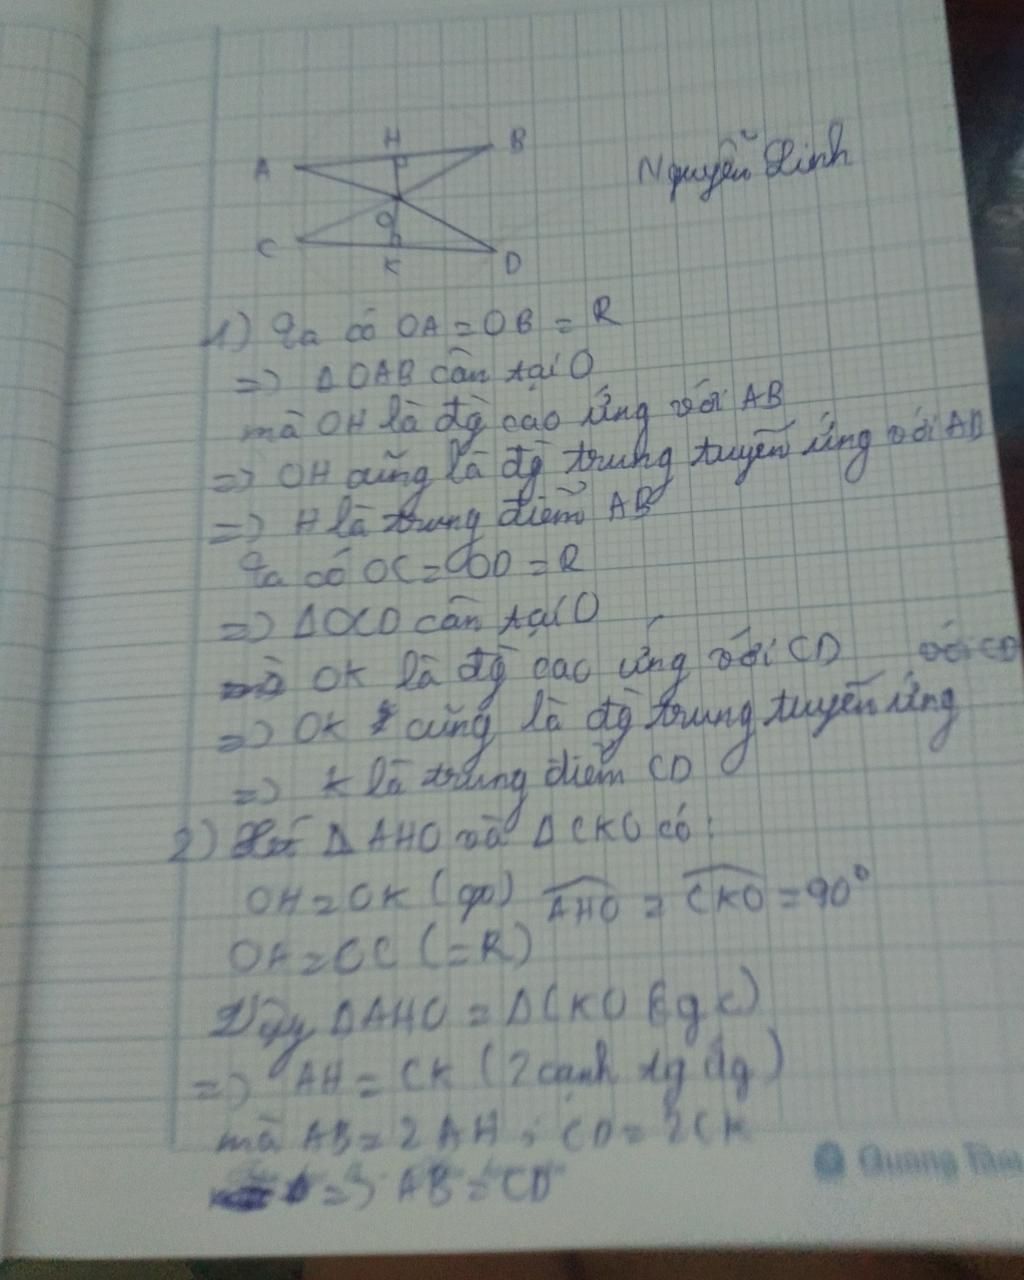 H
B
A
Nguyễn Linh
O
C
K
D
1) Ta có OA = OB = R
=> ΔOAB cân tại O
mà OH là đg cao ứng với AB
=> OH cũng là đg trung tuyến ứng với AB
=> H là trung điểm AB
Ta có OC = OD = R
=> ΔOCD cân tại O
mà OK là đg cao ứng với CD
=> OK cũng là đg trung tuyến ứng với CD
=> K là trung điểm CD
2) Xét Δ AHO và Δ CKO có:
OH = OK (gt) AHO = CKO = 90°
OA = OC (= R)
Vậy ΔAHO = ΔCKO
=> AH = CK (2 cạnh tg ứg)
mà AB = 2 AH ; CD = 2CK
=> AB = CD
Quang Tâm